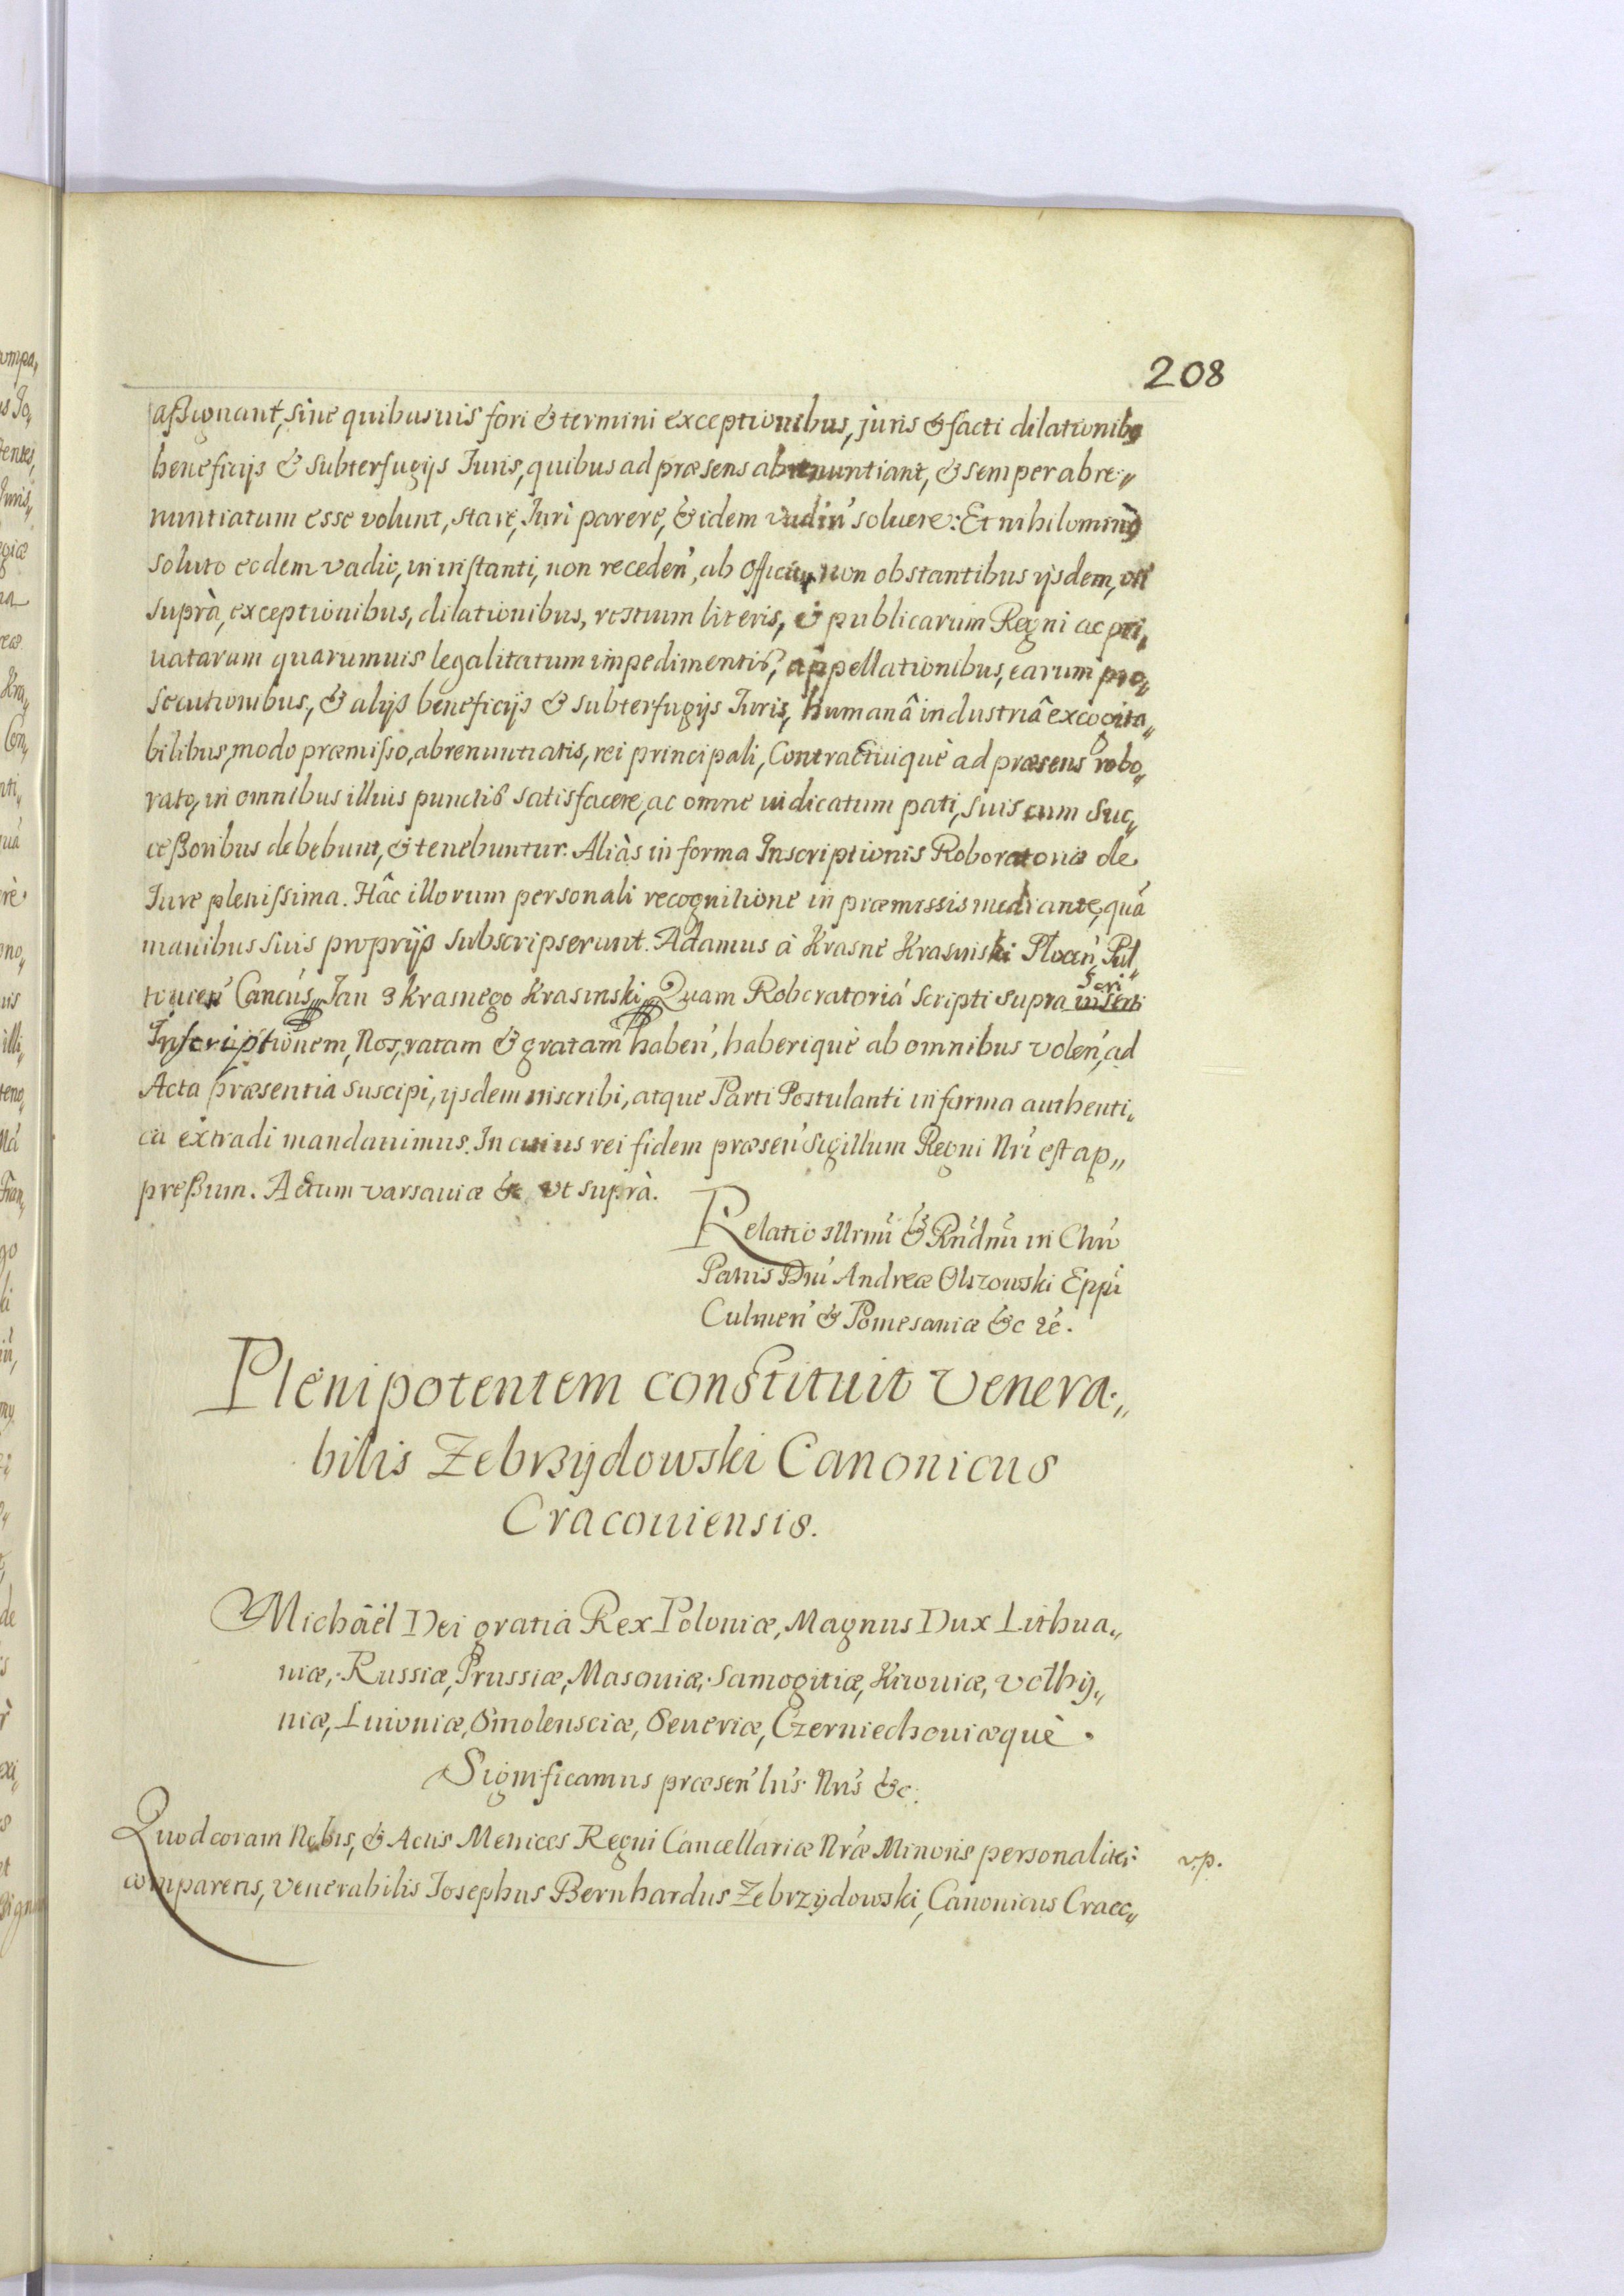 208
assignant, sine quibusuis fori & termini exceptionibus, juris & facti dilationibꝫ
beneficijs & subterfugijs Iuris, quibus ad præsens abrenuntiant, & semper abre„
nuntiatum esse volunt, stare, Iuri parere, & idem vadiū soluere: Et nihilominꝫ
soluto eodem vadio, in instanti, non receden̄, ab Officio, non obstantibus ijsdem, uti
suprà, exceptionibus, dilationibus, restium literis, & publicarum Regni ac pri„
uatarum quarumuis legalitatum impedimentis, appellationibus, earum pro„
secutionibus, & alijs beneficijs & subterfugijs Iuris, humanâ industriâ excogita„
bilibus, modo præmisso, abrenuntiatis, rei principali, Contractuiquè ad præsens robo„
rato, in omnibus illius punctis satisfacere, ac omne iudicatum pati, suis cum Suc„
ceßoribus debebunt, & tenebuntur. Aliàs in forma Inscriptionis Roboratoriæ de
Iure plenissima. Hâc illorum personali recognitione in præmissis mediante, quā
manibus suis proprijs subscripserunt. Adamus à Krasne Krasinski Plocen̄, Pul„
touien̄ Cancūs„ Jan З Krasnego Krasinski„ Quam Roboratoriā Scripti supra inserti
Seri
Inscriptionem, Nos, ratam & gratam haben̄, haberiquè ab omnibus volen̄, ad
Acta præsentia suscipi, ijsdem inscribi, atque Parti Postulanti in forma authenti„
ca extradi mandauimus. In cuius rei fidem præsen̄ Sigillum Regni Nrī est ap„
preßum. Actum Varsauiæ & ut suprà.
Relatio Illrmī & Rndmī in Chrō
Patris Dnī Andreæ Olszowski Eppī
Culmen̄ & Pomesaniæ &c ꝛc̄.
Plenipotentem constituit Venera„
bilis Zebrzydowski Canonicus
Cracouiensis.
Michäel Dei gratia Rex Poloniæ, Magnus Dux Lithua„
niæ, Russiæ, Prussiæ, Masouiæ, Samogitiæ, Kiiouiæ, Volhy„
niæ, Liuoniæ, Smolensciæ, Seueriæ, Czerniechouiæquè.
Significamus præsen̄ lrīs Nrīs &c.
Quod coram Nobis, & Actis Metrices Regni Cancellariæ Nrǣ Minoris personaliter
v.p.
comparens, Venerabilis Josephus Bernhardus Zebrzydowski, Canonicus Craco„